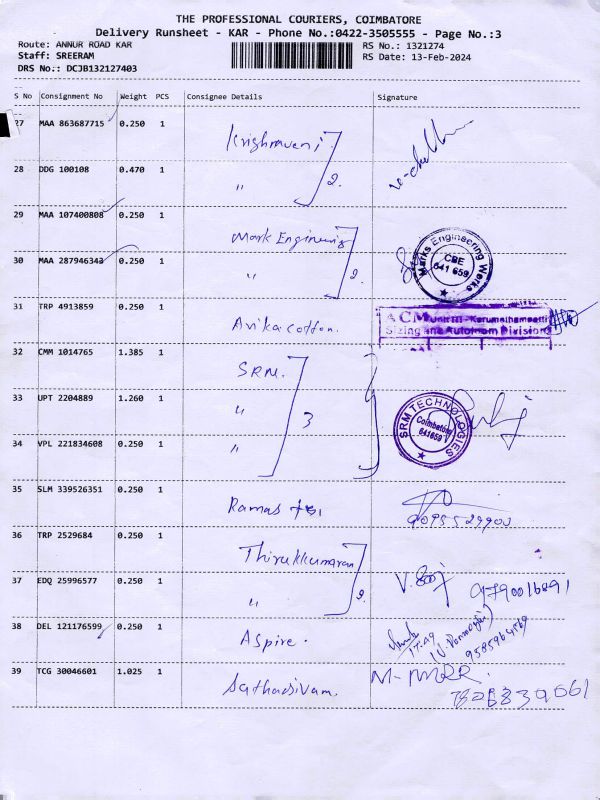 THE PROFESSIONAL COURIERS, COIMBATORE
Delivery Runsheet - KAR - Phone No.:0422-3505555 - Page No.:3
Route: ANNUR ROAD KAR RS No.: 1321274
Staff: SREERAM RS Date: 13-Feb-2024
DRS No.: DCJB132127403
S No Consignment No Weight PCS Consignee Details Signature
27 MAA 863687715 0.250 1 Krishnaveni
28 DDG 100108 0.470 1 " 2.
29 MAA 107400808 0.250 1 Mark Engineering
30 MAA 287946343 0.250 1 " 2.
Marks Engineering Works
CBE
641 659
31 TRP 4913859 0.250 1 Avika cotton.
ACM Karumathampatti
Sizing and Autoloom Division
32 CMM 1014765 1.385 1 SRM.
33 UPT 2204889 1.260 1 " 3
SRM TECHNOLOGIES
Coimbatore
641659
34 VPL 221834608 0.250 1 "
35 SLM 339526351 0.250 1 Ramas
9095529900
36 TRP 2529684 0.250 1 Thirukkumaran
37 EDQ 25996577 0.250 1 " 2.
38 DEL 121176599 0.250 1 Aspire.
39 TCG 30046601 1.025 1 Sathasivam.